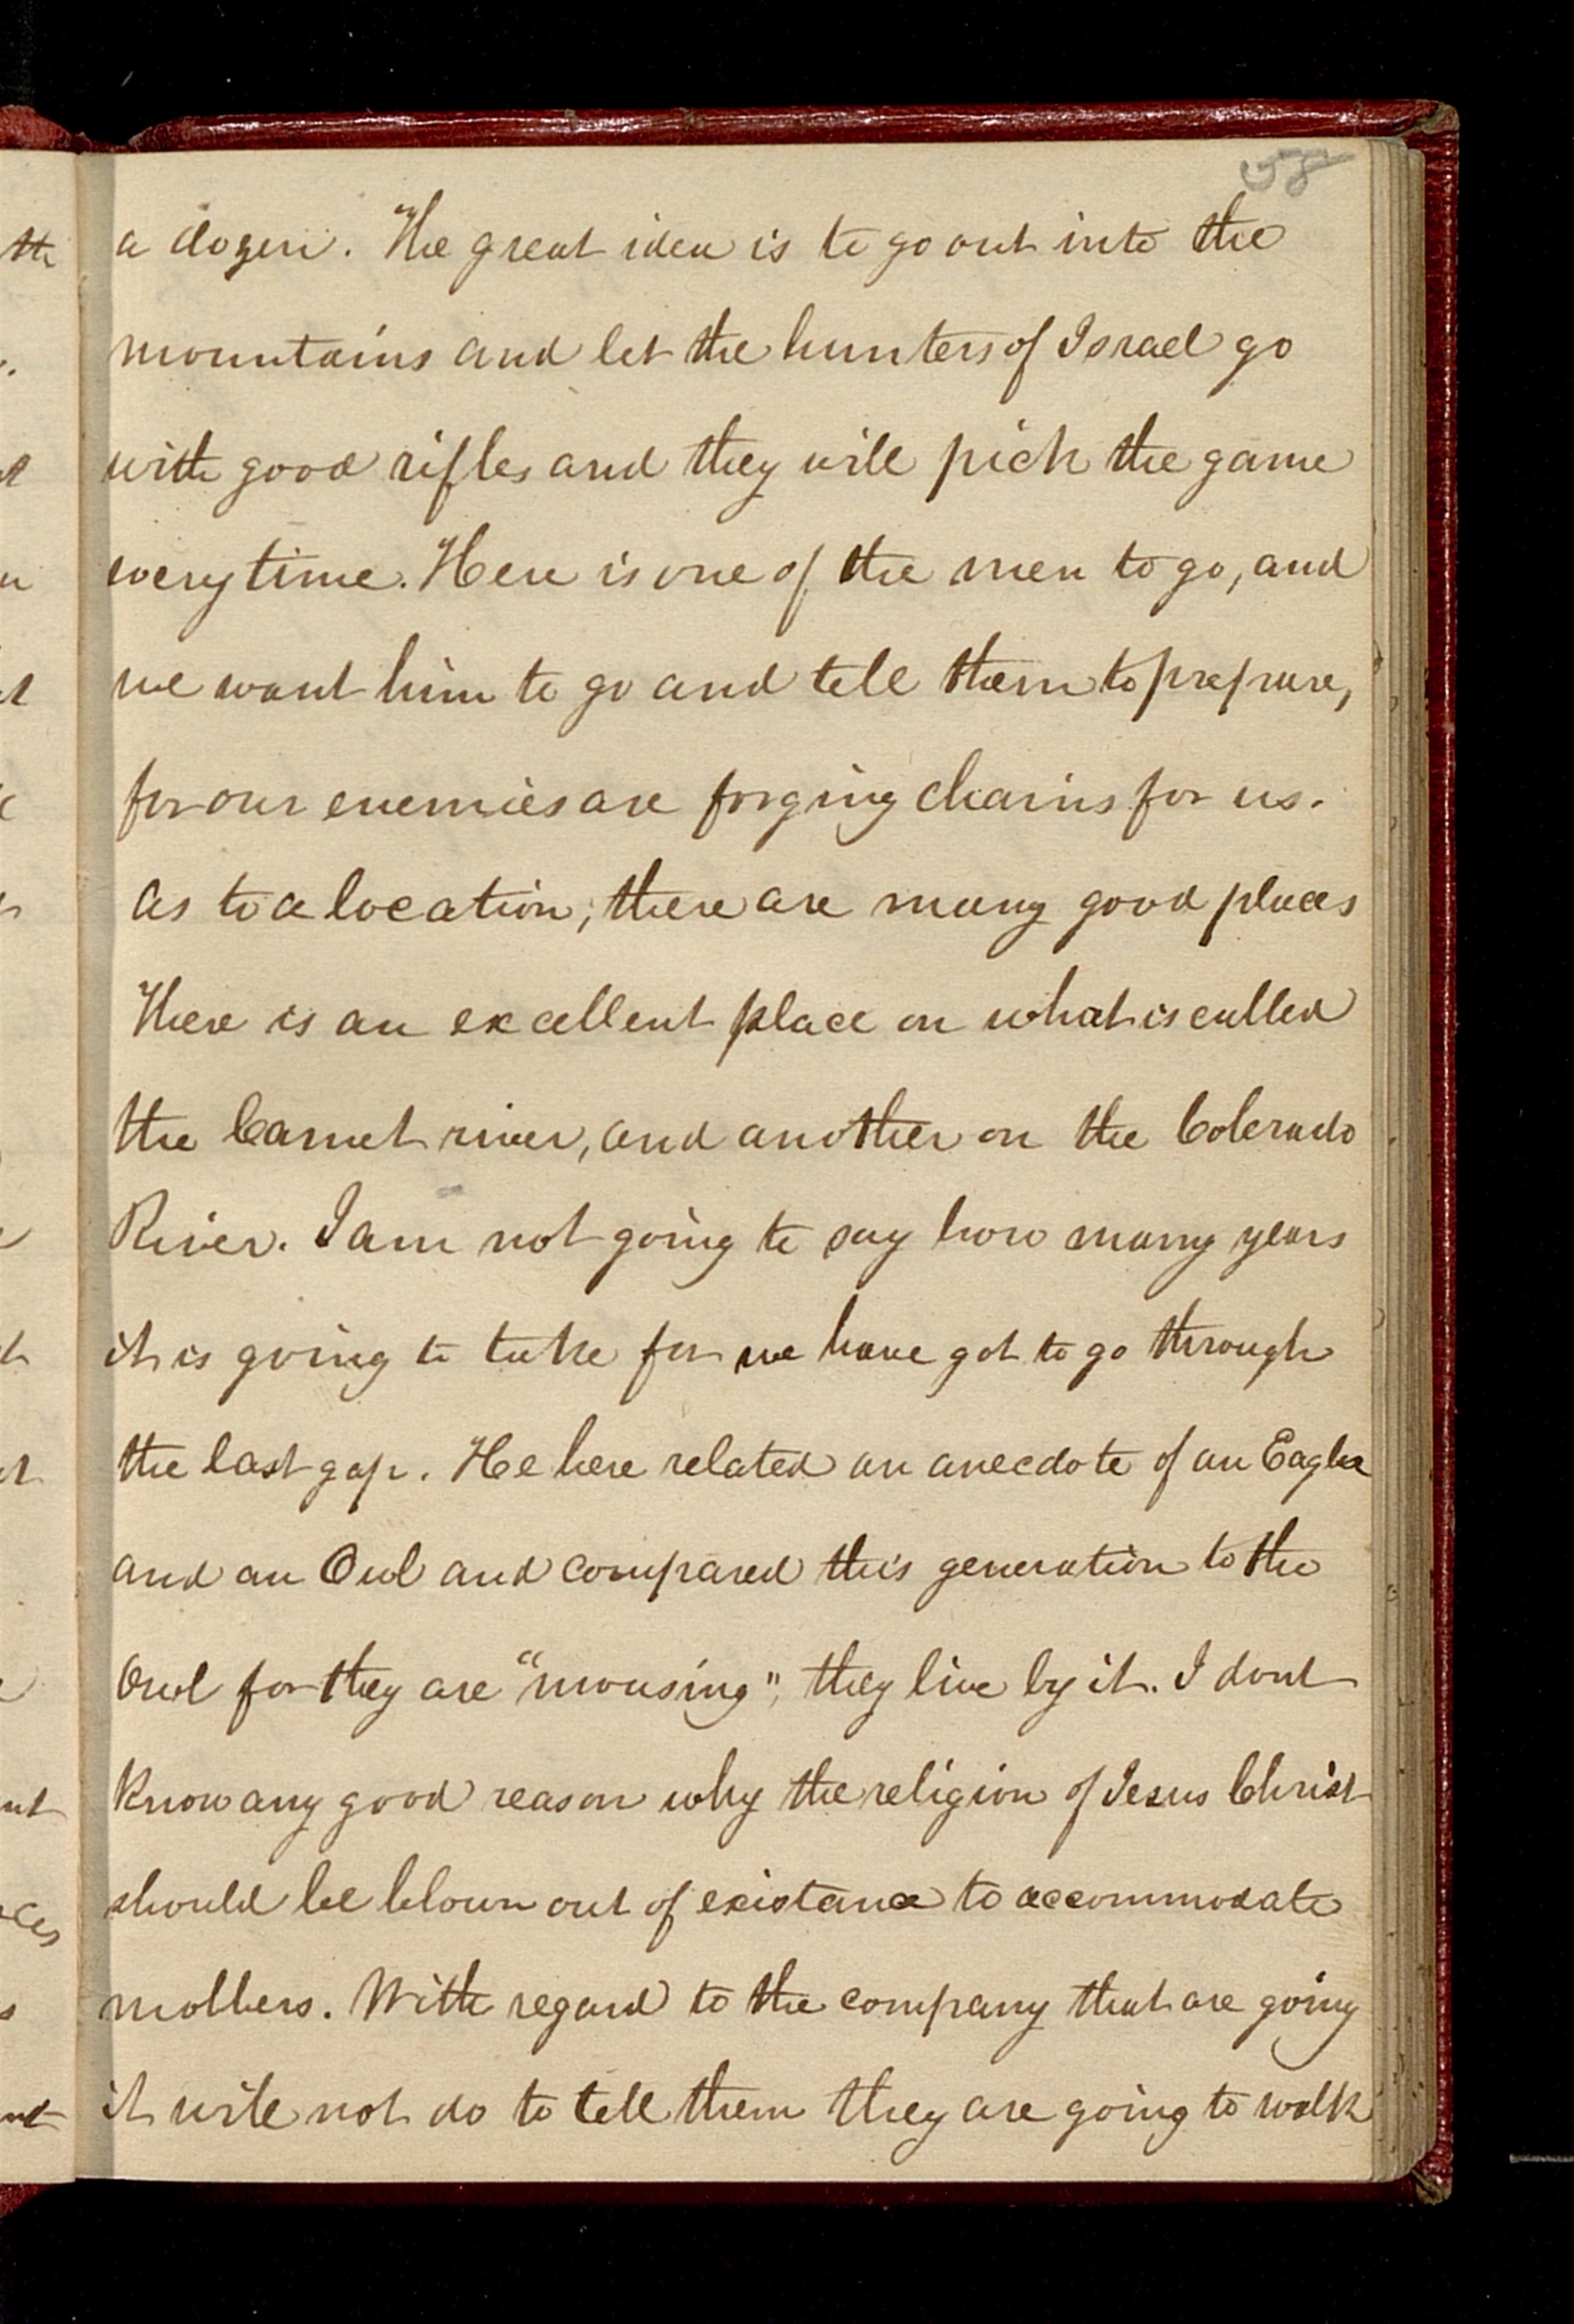 58
a dozen. The great idea is to go out into the
mountains and let the hunters of Israel go
with good rifles and they will pick the game
every time. Here is one of the men to go, and
we want him to go and tell them to prepare,
for our enemies are forging chains for us.
As to a location, there are many good places
There is an excellent place on what is called
the river, and another on the Colerado
River. I am not going to say how many years
it is going to take for we have got to go through
the last gap. He here related an anecdote of an Eagle
and an Owl and compared this generation to the
Owl for they are "mousing", they live by it. I dont
know any good reason why the religion of Jesus Christ
should be blown out of existance to accommodate
mobbers. With regard to the company that are going
it will not do to tell them they are going to walk